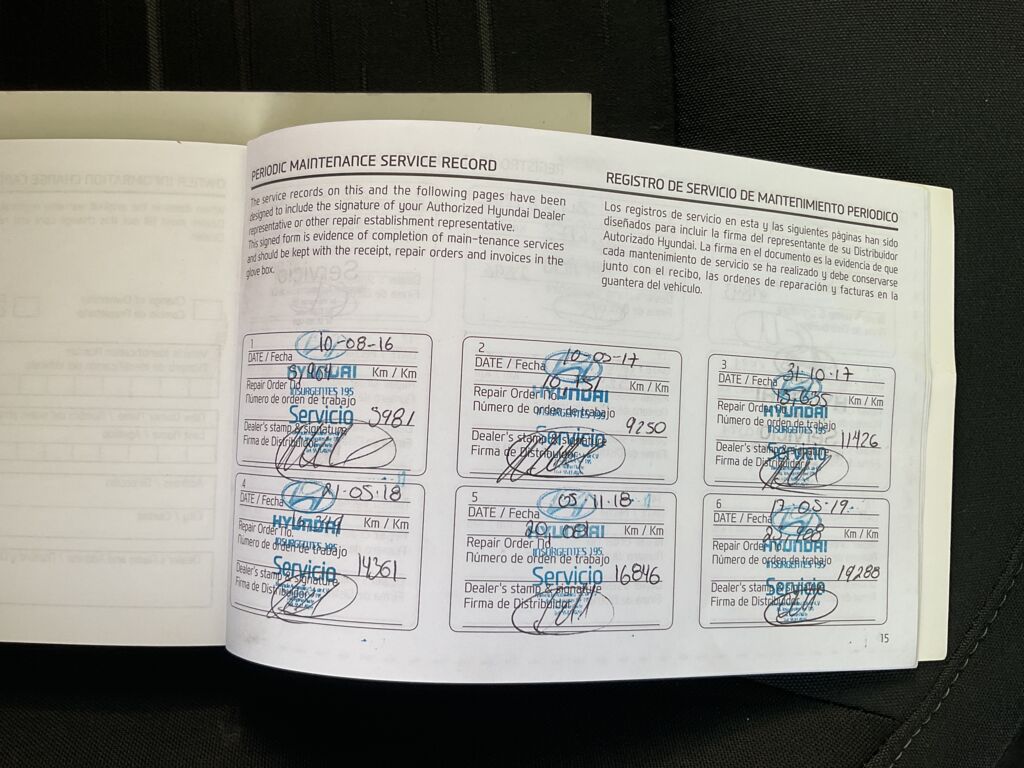 PERIODIC MAINTENANCE SERVICE RECORD
The service records on this and the following pages have been
designed to include the signature of your Authorized Hyundai Dealer
representative or other repair establishment representative.
This signed form is evidence of completion of main-tenance services
and should be kept with the receipt, repair orders and invoices in the
glove box.
REGISTRO DE SERVICIO DE MANTENIMIENTO PERIODICO
Los registros de servicio en esta y las siguientes páginas han sido
diseñados para incluir la firma del representante de su Distribuidor
Autorizado Hyundai. La firma en el documento es la evidencia de que
cada mantenimiento de servicio se ha realizado y debe conservarse
junto con el recibo, las ordenes de reparación y facturas en la
guantera del vehículo.
1
10-08-16
DATE / Fecha
HYUNDAI
Km / Km
Repair Order No.
INSURGENTES 195
Número de orden de trabajo
Servicio 5981
Dealer's stamp & signature
Firma de Distribuidor
2
10-05-17
DATE / Fecha
10,751 Km / Km
Repair Order No. HYUNDAI
Número de orden de trabajo
INSURGENTES 195
Servicio 9250
Dealer's stamp & signature
Firma de Distribuidor
3
31-10-17
DATE / Fecha
Km / Km
Repair Order No. HYUNDAI
Número de orden de trabajo
INSURGENTES 195
Servicio 11426
Dealer's stamp & signature
Firma de Distribuidor
4
21-05-18
DATE / Fecha
HYUNDAI Km / Km
Repair Order No.
INSURGENTES 195
Número de orden de trabajo
Servicio 14361
Dealer's stamp & signature
Firma de Distribuidor
5
05-11-18
DATE / Fecha
HYUNDAI Km / Km
Repair Order No.
INSURGENTES 195
Número de orden de trabajo
Servicio 16846
Dealer's stamp & signature
Firma de Distribuidor
6
17-05-19
DATE / Fecha
Km / Km
Repair Order No. HYUNDAI
INSURGENTES 195
Número de orden de trabajo
Servicio 19288
Dealer's stamp & signature
Firma de Distribuidor
15